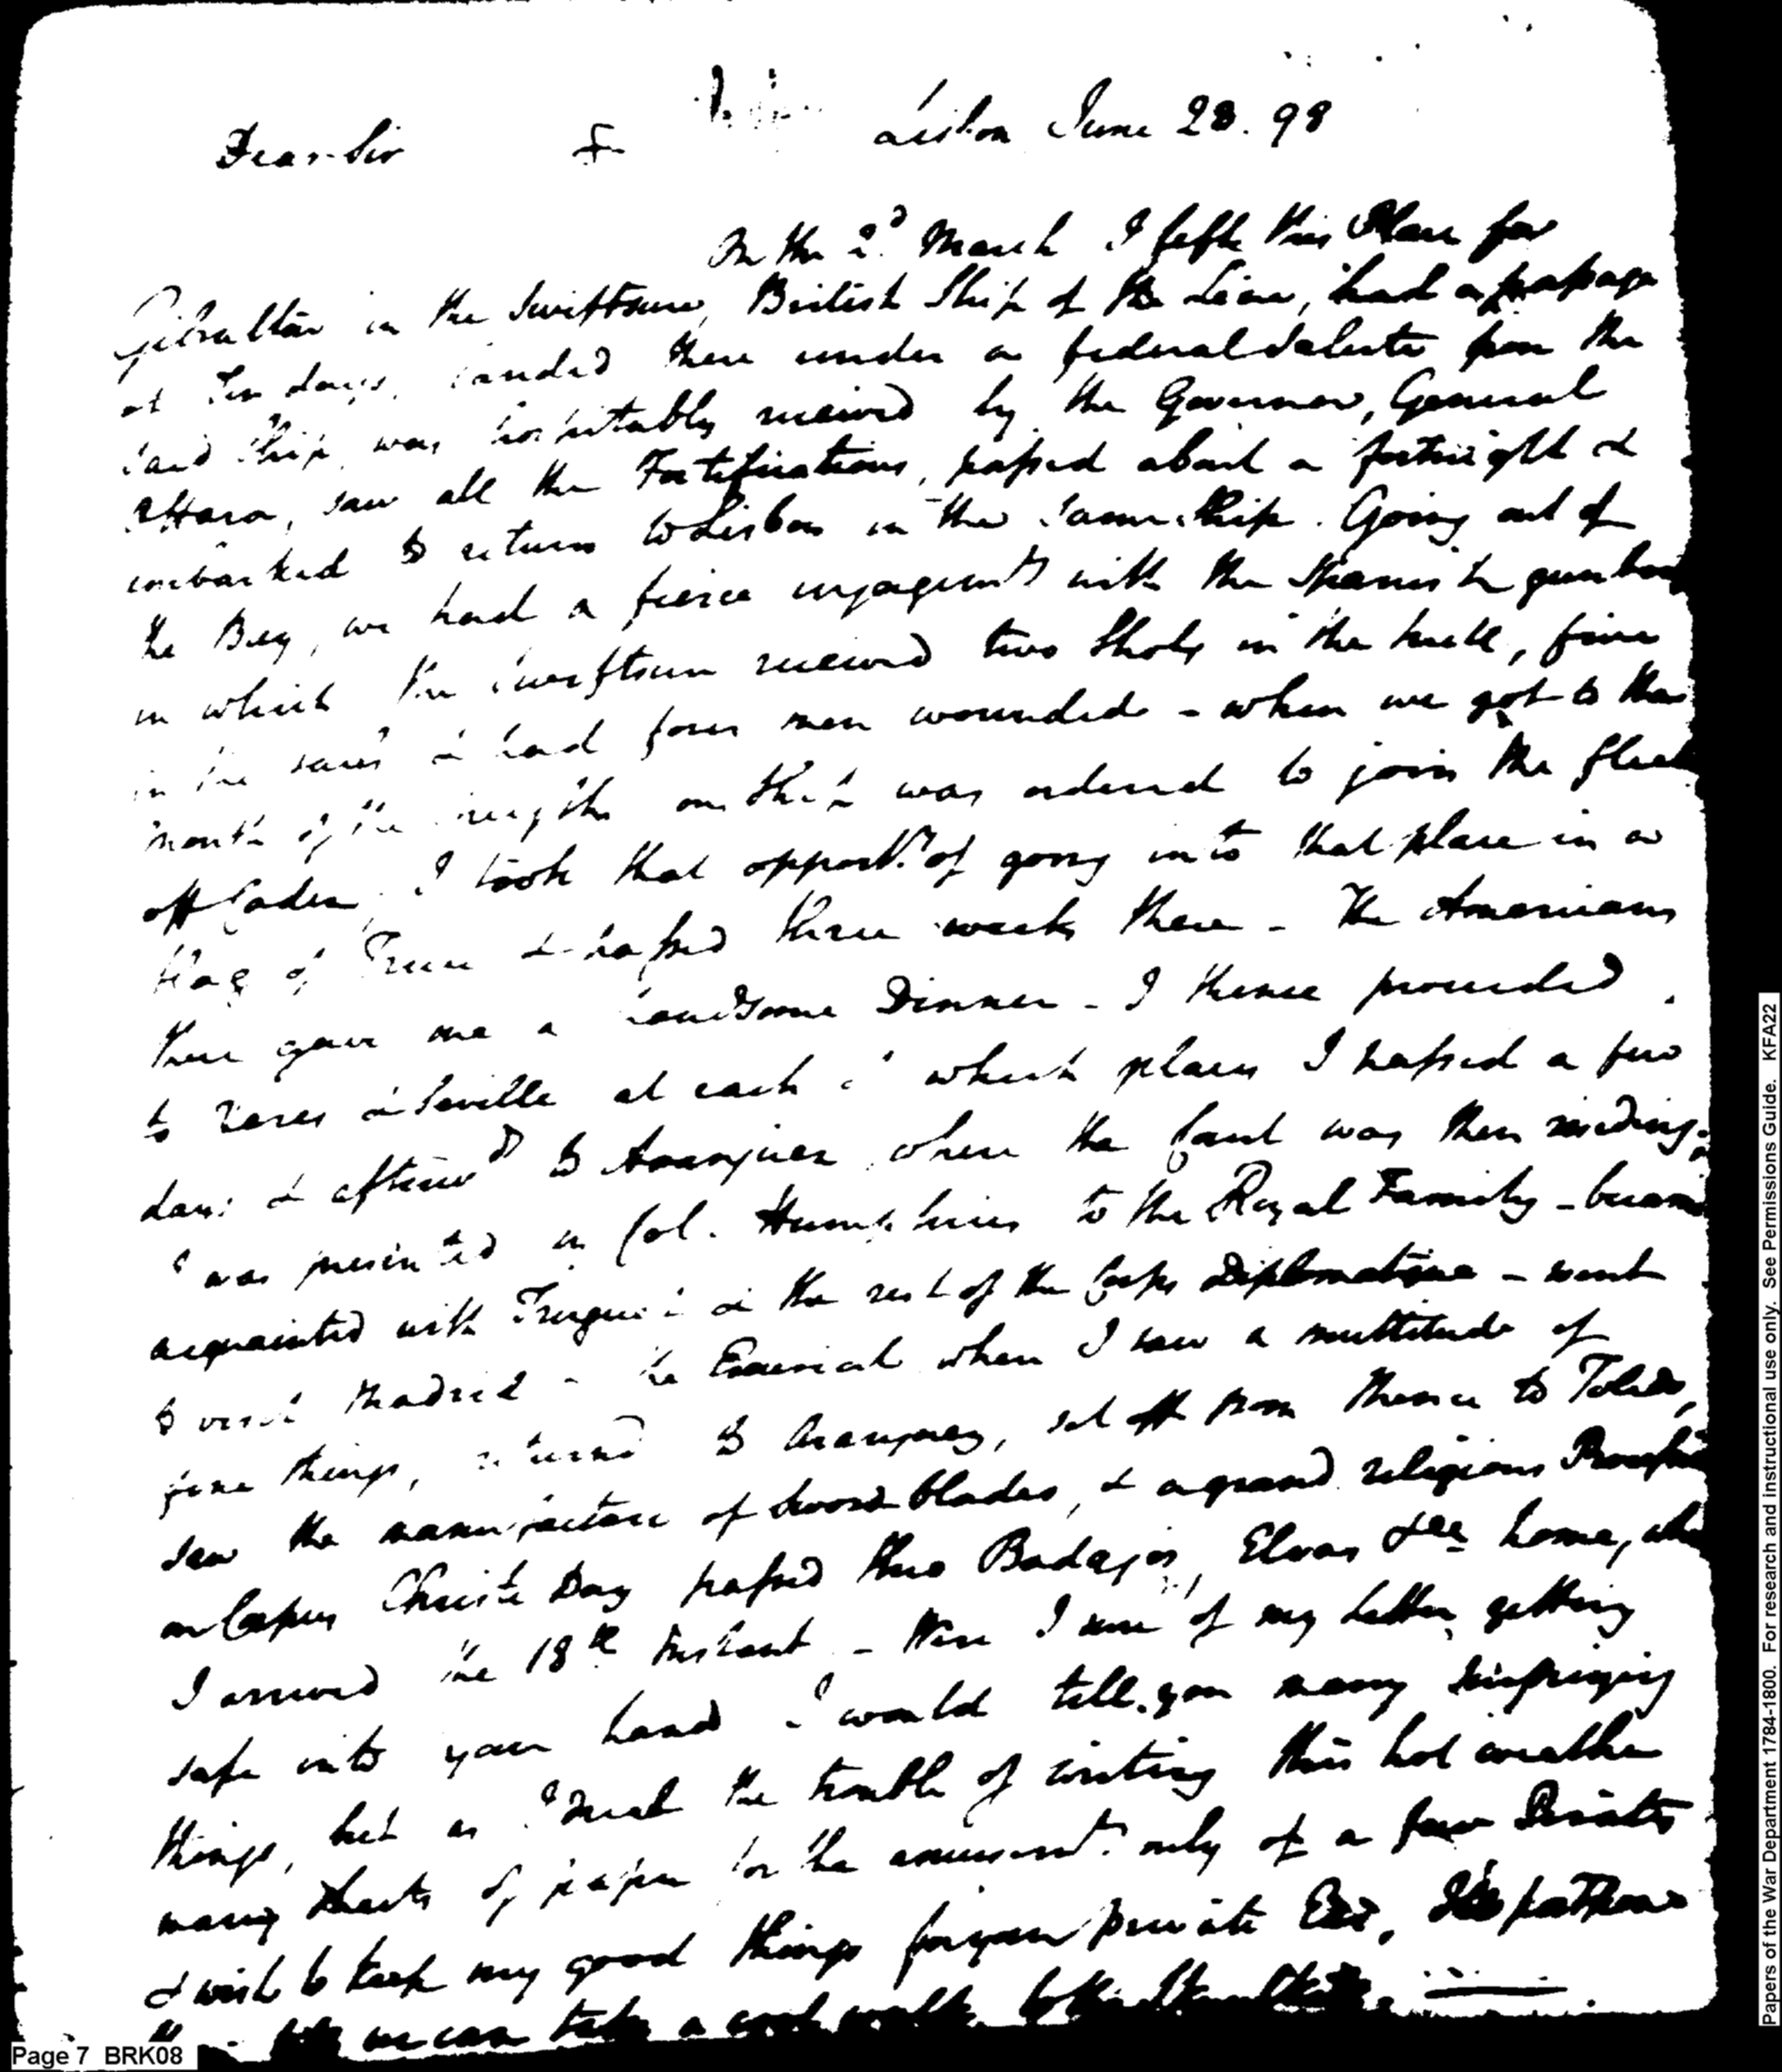 Lisbon June 28. 98
Dear Sir
On the 2d March I left this Place for
Gibraltar in the Swiftsure, British Ship of the Line, had a passage
of Ten days, landed there under a federal salute from the
said Ship, was hospitably received by the Governor, General
OHara, saw all the Fortifications, passed about a fortnight &
embarked to return to Lisbon in the same ship. Going out of
the Bay, we had a fierce engagemt with the Spanish gunboats
in which the Swiftsure received two Shots in the hull, five
in the & had four men wounded - when we got to the
mouth of the our Ship was ordered to join the fleet
off Cadiz. I took that opporty. of going into that place in a
flag of Truce & passed three weeks there - The Americans
there gave me a handsome Dinner - I thence proceeded
to Xeres & Seville at each of which places I passed a few
days & afterwds to Aranjuez where the Court was then residing.
I was presented by Col. Humphries to the Royal Family - became
acquainted with & the rest of the Corps Diplomatique - went
to visit Madrid & the Escurial where I saw a multitude of
fine things, returned to Aranjuez, set off from thence to Toledo,
saw the manufacture of Sword blades, & a grand religious Procession
on Corpus Christi Day passed thro Badajos, Elvas &ca home, where
I arrived the 18th Instant - Were I sure of my letters getting
safe into your hand I would tell you many surprizing
things, but as I the trouble of writing this hot weather
many sheets of paper for the amusemt. only of a few Pirates
& wish to keep my good things for your private Ear,
we can take a cool walk
Page 7 BRK08
Papers of the War Department 1784-1800. For research and instructional use only. See Permissions Guide. KFA22